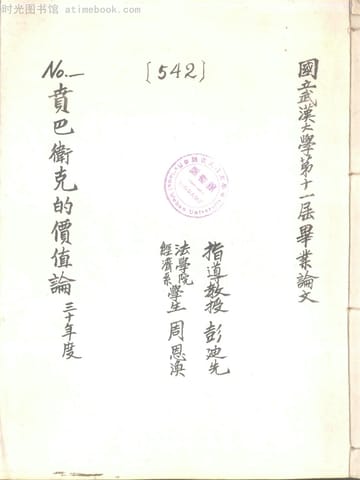 时光图书馆 - atimebook.com
國立武漢大學第十一屆畢業論文
[542]
指導教授 彭迪先
法學院
經濟系
學生 周恩渙
No.—
賁巴衛克的價值論 三十年度